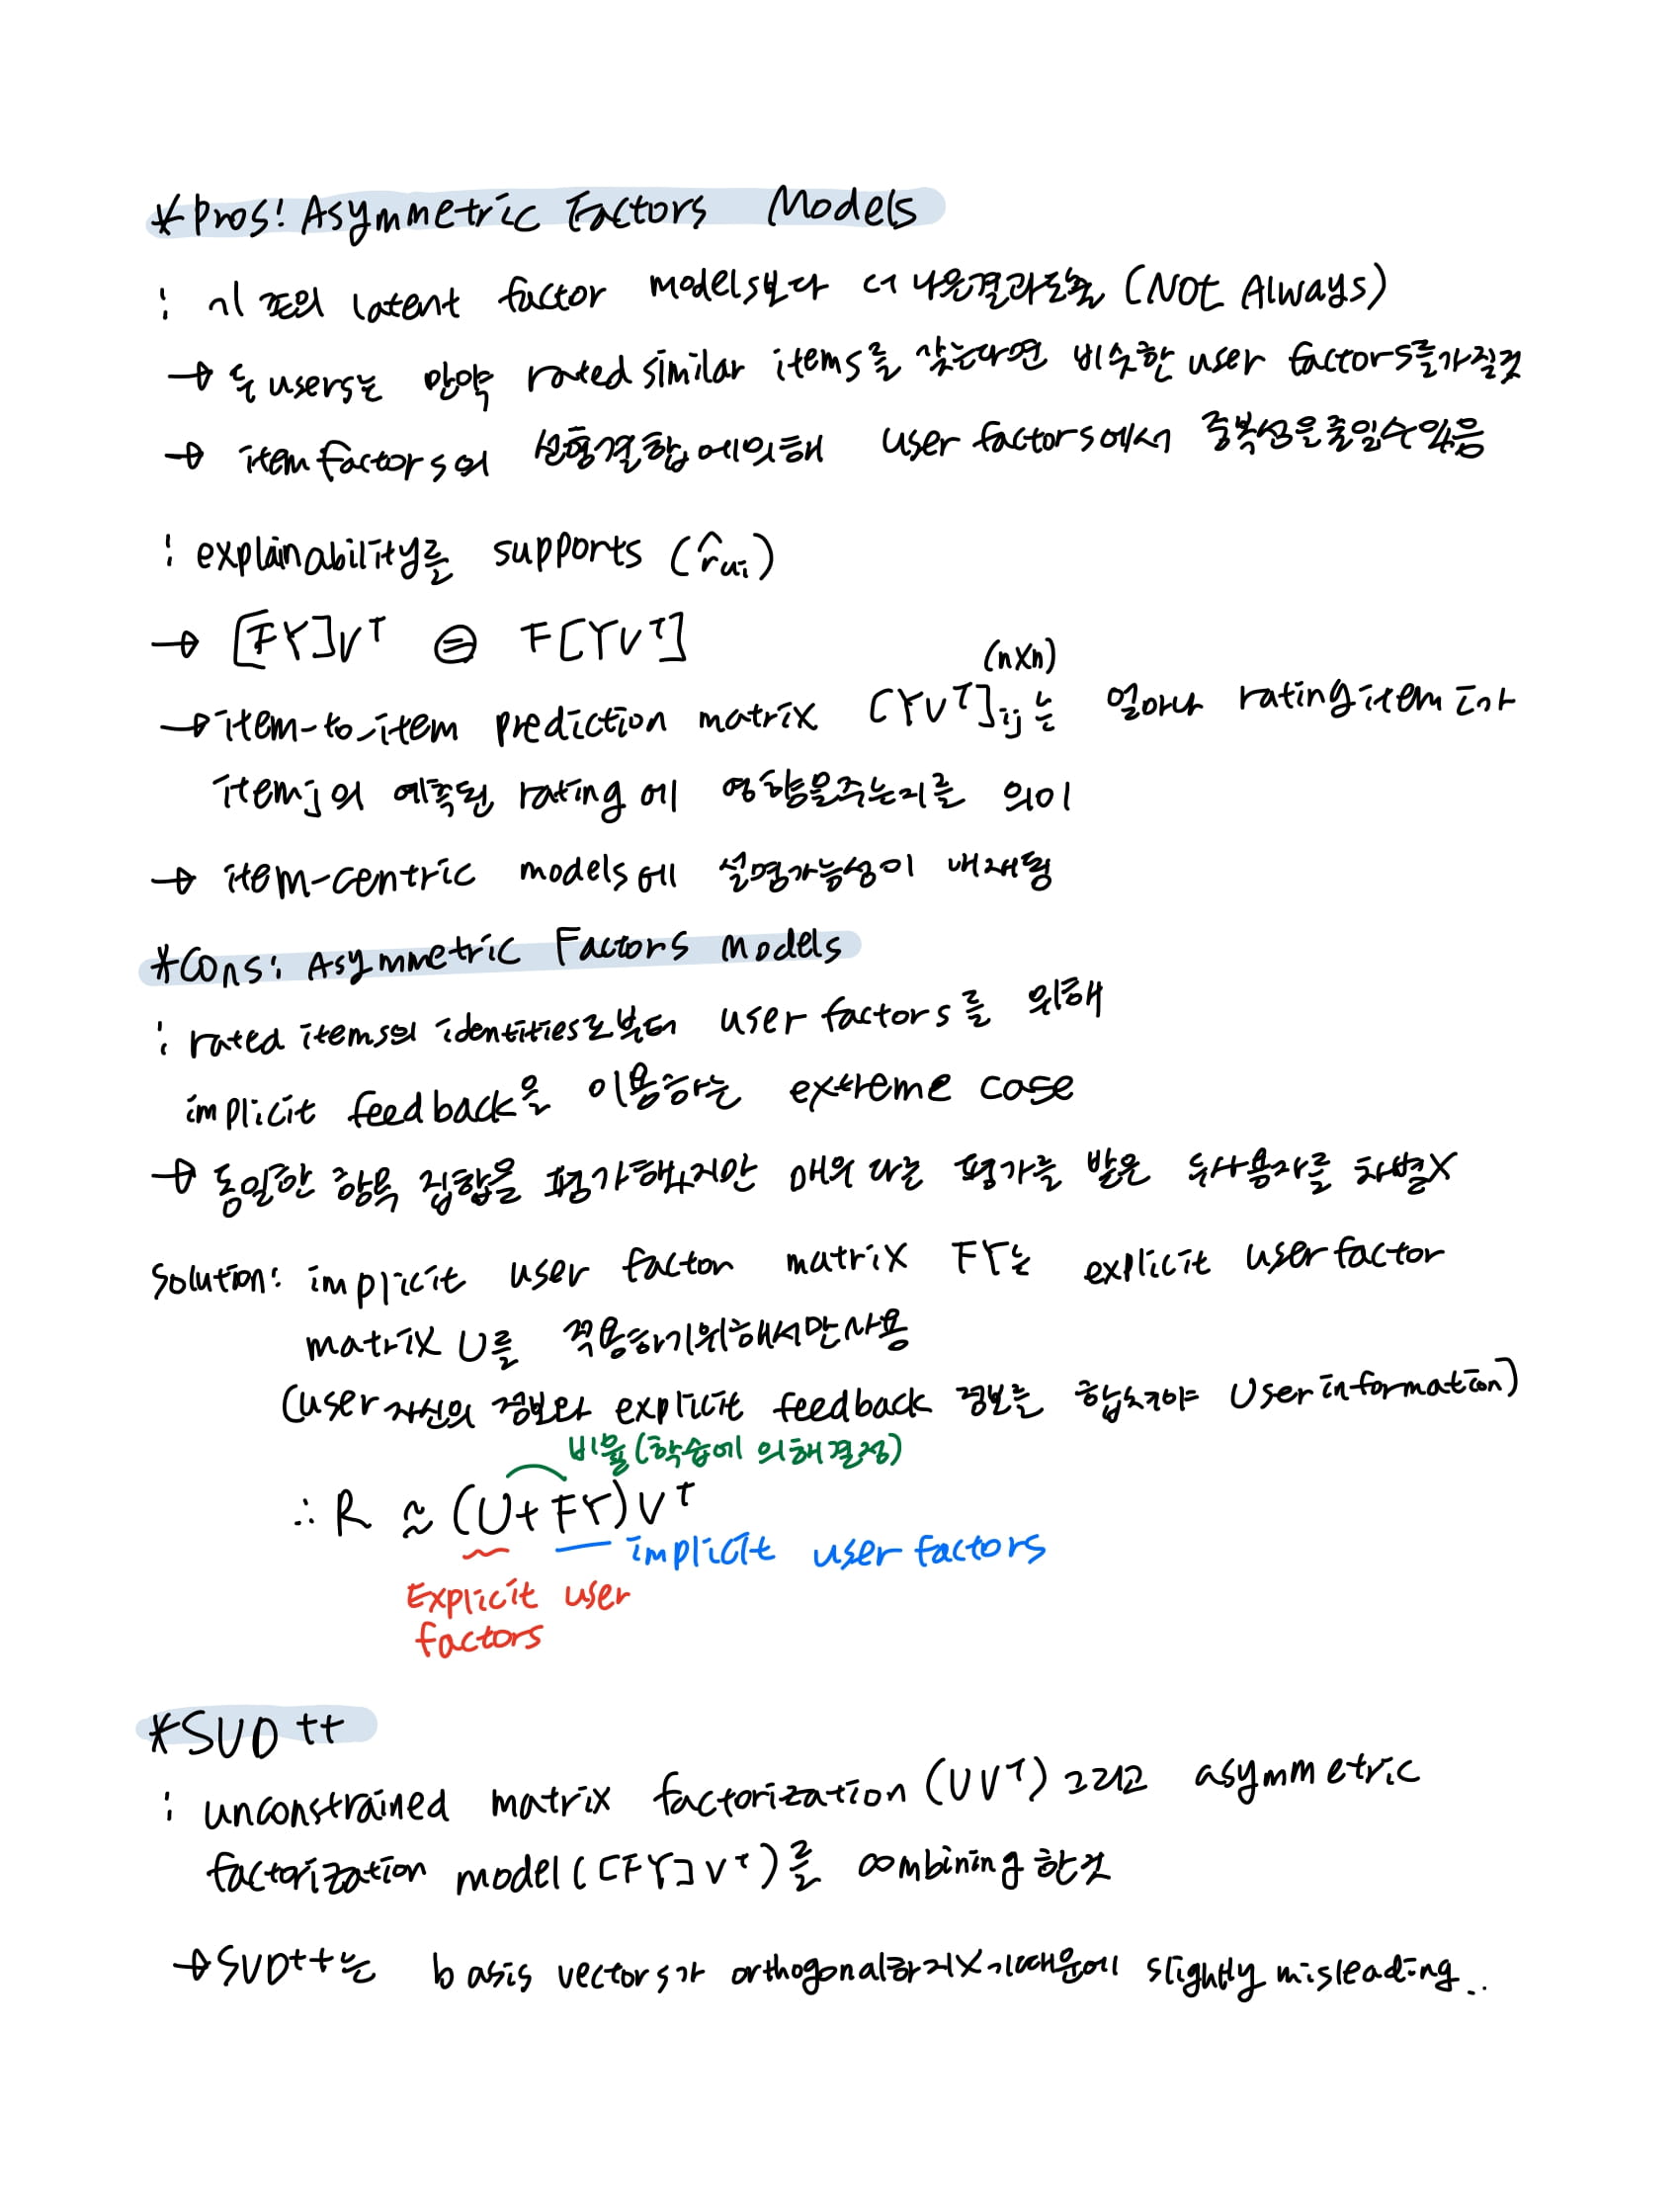 *Pros: Asymmetric Factors Models
: 기존의 latent factor models보다 더 나은결과도출 (Not Always)
→ 두 users는 만약 rated similar items를 갖는다면 비슷한 user factors를가질것
→ item factors의 선형결합에의해 user factors에서 중복성을줄일수있음
: explainability를 supports (r̂ui)
→ [FY]V^T ⊜ F[YV^T]
(n×n)
→ item-to-item prediction matrix [YV^T]ij는 얼마나 rating item I가
item j의 예측된 rating에 영향을주는지를 의미
→ item-centric models에 설명가능성이 내재됨
*Cons: Asymmetric Factors Models
: rated items의 identities로부터 user factors를 위해
implicit feedback을 이용하는 extreme case
→ 동일한 항목 집합을 평가했지만 매우 다른 평가를 받은 두사용자를 차별X
Solution: implicit user factor matrix FY는 explicit user factor
matrix U를 적용하기위해서만사용
(user 자신의 정보와 explicit feedback 정보를 합쳐야 User information)
비율(학습에 의해결정)
∴ R ≈ (U+FY)V^T
implicit user factors
Explicit user
factors
*SVD++
: unconstrained matrix factorization (UV^T) 그리고 asymmetric
factorization model([FY]V^T)를 combining한것
→ SVD++는 basis vectors가 orthogonal하지X기때문에 slightly misleading..